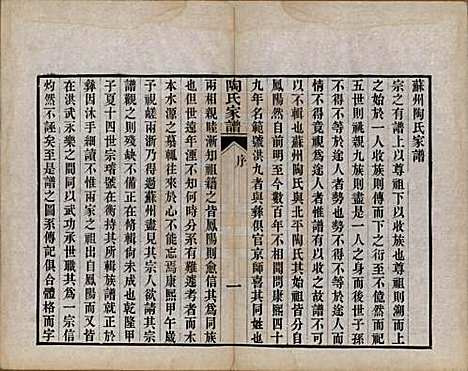 蘇州陶氏家譜
宗之有譜上以尊祖下以收族也尊祖則溯而上
之始於一人收族則傳而下之至於不億然而祀
五世則祧譜親九族則盡一人之身而後世子孫
不得不等於途人者勢也勢不得不等於途人而
情不得竟視爲途人者惟譜有以收之故譜不可
以不輯也蘇州陶氏與北平陶氏其始祖皆分於
鳳陽然自前明以來僅數百年不相聞問康熙四十
九年名範號洪九者與彝俱官京師喜其同姓也
陶氏家譜
序
一
兩相親睦漸知祖籍之皆鳳陽則愈信其同族
也但世次有前後派有遠近則疑似者半焉而木
本水源之慕輒往來於心不忘焉康熙甲午歲
予視鹺兩浙乃得過蘇州盡見其宗人欲請其宗
譜觀之則殘缺不備正在脩輯尚未成也乾隆甲
子夏十四世宗瑃號在衡持其所輯族譜就正於
彝因沐手細讀不惟兩家之祖出自鳳陽而又皆
在洪武永樂之間以武功承世職其爲一宗信
灼然不誣矣至是譜之圖系傳記俱合體格而字